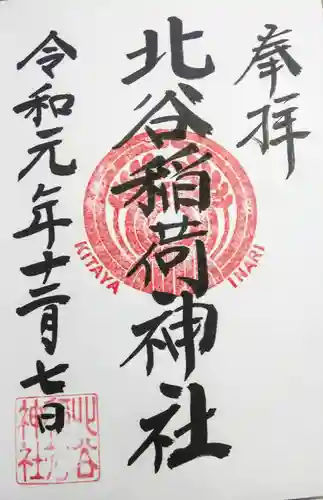 奉拝
北谷稲荷神社
令和元年十二月七日
KITAYA
INARI
北谷
稲荷
神社